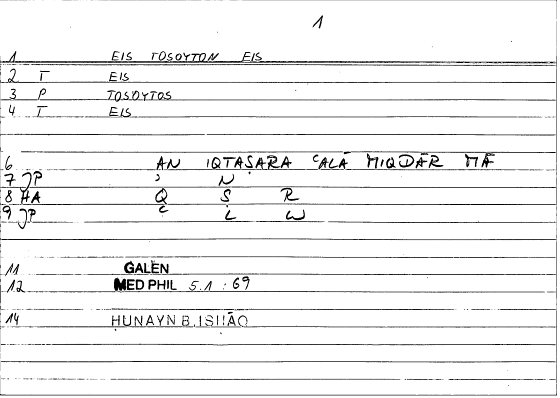 1
1 EIS TOSOYTON EIS
2 T EIS
3 P TOSOYTOS
4 T EIS
6 AN IQTAṢARA ʿALĀ MIQDĀR MĀ
7 JP ʾ N
8 HA Q Ṣ R
9 JP ʿ L W
11 GALEN
12 MED PHIL 5.1 : 69
14 ḤUNAYN B. ISḤĀQ